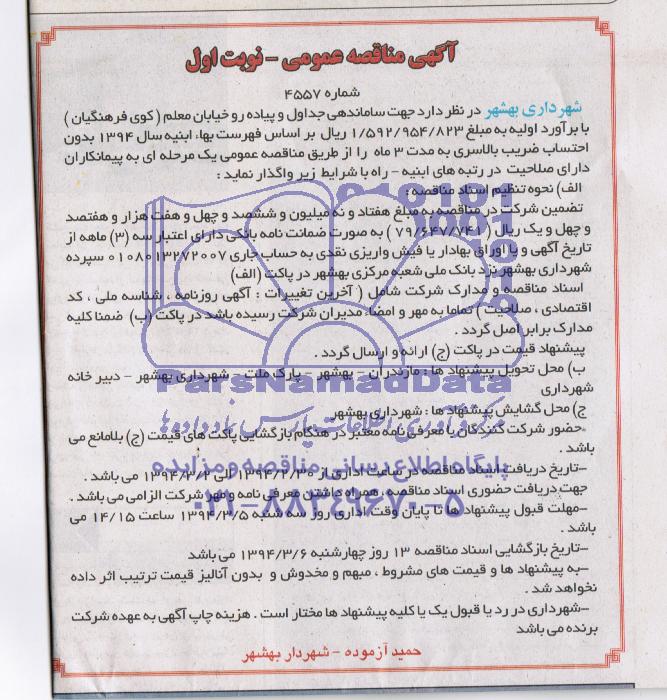 آگهی مناقصه عمومی - نوبت اول
شماره ۴۵۵۷
شهرداری بهشهر در نظر دارد جهت ساماندهی جداول و پیاده رو خیابان معلم ( کوی فرهنگیان )
با برآورد اولیه به مبلغ ۱/۵۹۲/۹۵۴/۸۲۳ ریال بر اساس فهرست بهاء ابنیه سال ۱۳۹۴ بدون
احتساب ضریب بالاسری به مدت ۳ ماه را از طریق مناقصه عمومی یک مرحله ای به پیمانکاران
دارای صلاحیت در رتبه های ابنیه - راه با شرایط زیر واگذار نماید :
الف) نحوه تنظیم اسناد مناقصه :
تضمین شرکت در مناقصه به مبلغ هفتاد و نه میلیون و ششصد و چهل و هفت هزار و هفتصد
و چهل و یک ریال ( ۷۹/۶۴۷/۷۴۱ ) به صورت ضمانت نامه بانکی دارای اعتبار سه (۳) ماهه از
تاریخ آگهی و یا اوراق بهادار یا فیش واریزی نقدی به حساب جاری ۰۱۰۸۰۱۳۲۷۲۰۰۷ سپرده
شهرداری بهشهر نزد بانک ملی شعبه مرکزی بهشهر در پاکت (الف)
اسناد مناقصه و مدارک شرکت شامل ( آخرین تغییرات : آگهی روزنامه ، شناسه ملی ، کد
اقتصادی ، صلاحیت ) تماما به مهر و امضاء مدیران شرکت رسیده باشد در پاکت (ب) ضمنا کلیه
مدارک برابر اصل گردد .
پیشنهاد قیمت در پاکت (ج) ارائه و ارسال گردد .
ب) محل تحویل پیشنهاد ها : مازندران - بهشهر - پارک ملت - شهرداری بهشهر - دبیر خانه
شهرداری
ج) محل گشایش پیشنهاد ها : شهرداری بهشهر
حضور شرکت کنندگان با معرفی نامه معتبر در هنگام بازگشایی پاکت های قیمت (ج) بلامانع می
باشد .
-تاریخ دریافت اسناد مناقصه در ساعت اداری از ۱۳۹۴/۲/۳۰ الی ۱۳۹۴/۳/۲ می باشد .
جهت دریافت حضوری اسناد مناقصه ، همراه داشتن معرفی نامه و مهر شرکت الزامی می باشد .
-مهلت قبول پیشنهاد ها تا پایان وقت اداری روز سه شنبه ۱۳۹۴/۳/۵ ساعت ۱۴/۱۵ می
باشد .
-تاریخ بازگشایی اسناد مناقصه ۱۳ روز چهارشنبه ۱۳۹۴/۳/۶ می باشد
-به پیشنهاد ها و قیمت های مشروط ، مبهم و مخدوش و بدون آنالیز قیمت ترتیب اثر داده
نخواهد شد .
-شهرداری در رد یا قبول یک یا کلیه پیشنهاد ها مختار است . هزینه چاپ آگهی به عهده شرکت
برنده می باشد
حمید آزموده - شهردار بهشهر
ParsNamadData
مرکز فرآوری اطلاعات پارس نماد داده ها
پایگاه اطلاع رسانی مناقصه و مزایده
۰۲۱-۸۸۳۴۹۶۷۰-۵